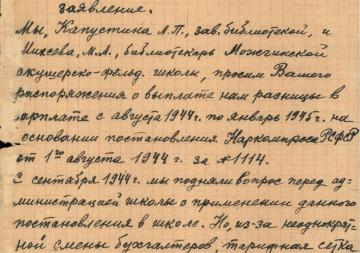 заявление.
Мы, Капустина Л.П., зав. библиотекой, и
Михеева, М.А., библиотекарь Можгинской
акушерско-фельд. школы, просим Вашего
распоряжения о выплате нам разницы в
зарплате с августа 1944г. по январь 1945г. на
основании постановления Наркомпроса РСФСР
от 1го августа 1944 г. за № 1114.
С сентября 1944г. мы подняли вопрос перед ад-
министрацией школы о применении данного
постановления в школе. Но, из-за неоднократ-
ной смены бухгалтеров, тарифная сетка